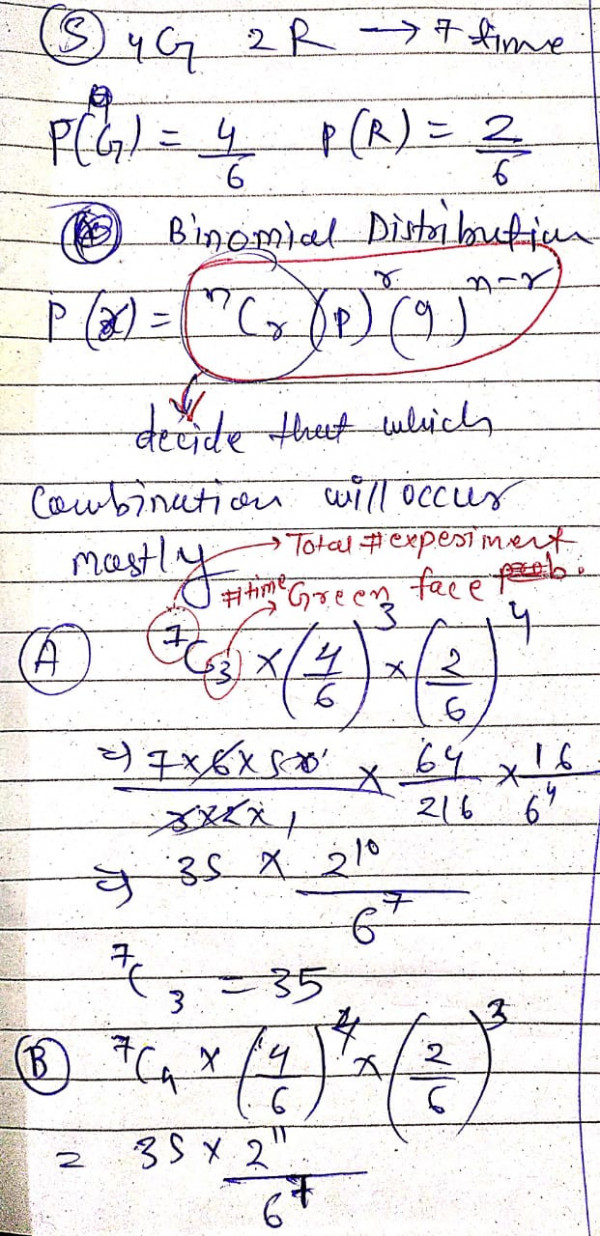 (S) 4G 2R → 7 time
P(G) = 4/6 P(R) = 2/6
Binomial Distribution
P(x) = ⁿCᵣ (p)ʳ (q)ⁿ⁻ʳ
decide that which
Combination will occur
mostly
→ Total # experiment
#time → Green face
(A) ⁷C₃ × (4/6)³ × (2/6)⁴
⇒ 7×6×5 / 3×2×1 × 64/216 × 16/6⁴
⇒ 35 × 2¹⁰/6⁷
⁷C₃ = 35
(B) ⁷C₄ × (4/6)⁴ × (2/6)³
= 35 × 2¹¹/6⁷